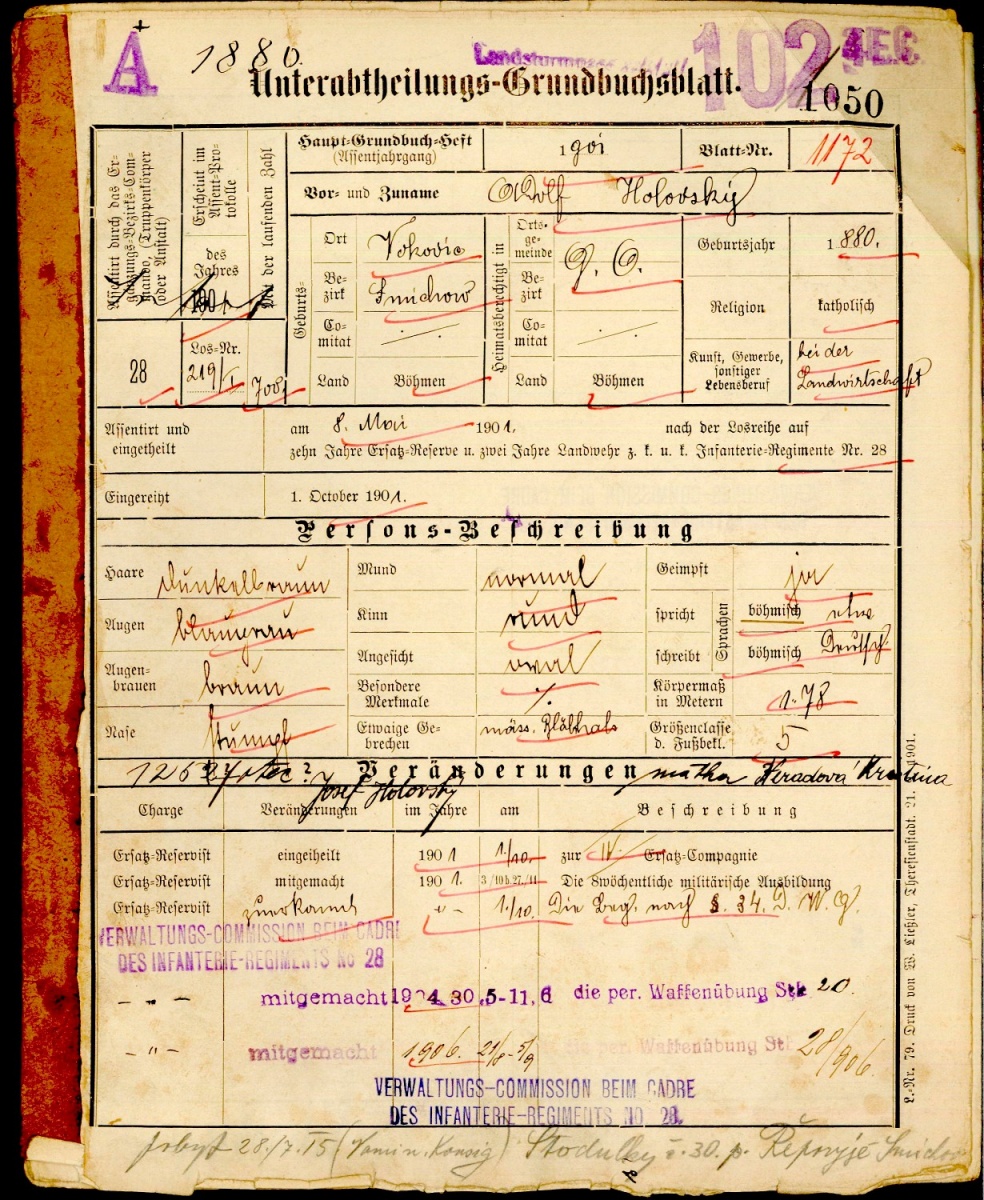 A
1880.
102
Unterabtheilungs-Grundbuchsblatt.
1050
Assentirt durch das Ergänzungs-Bezirks-Commando, (Truppenkörper oder Anstalt)
Erscheint im Assent-Protokolle
des Jahres
Mit der laufenden Zahl
28
Los-Nr.
219/I
Haupt-Grundbuch-Heft
(Assentjahrgang)
1901
Blatt-Nr.
1172
Vor- und Zuname
Adolf Holovský
Geburts-
Ort
Vokovic
Bezirk
Smichow
Comitat
Land
Böhmen
Heimatsberechtigt in
Ortsgemeinde
Bezirk
Comitat
Land
Böhmen
Geburtsjahr
1880.
Religion
katholisch
Kunst, Gewerbe,
sonstiger
Lebensberuf
bei der
Landwirtschaft
Assentirt und
eingetheilt
am 8. Mai 1901. nach der Losreihe auf
zehn Jahre Ersatz-Reserve u. zwei Jahre Landwehr z. k. u. k. Infanterie-Regimente Nr. 28
Eingereiht
1. October 1901.
Persons-Beschreibung
Haare dunkelbraun
Mund normal
Geimpft ja
Augen blaugrau
Kinn rund
spricht
Sprachen
böhmisch etw
Deutsch
schreibt
böhmisch
Augen-
brauen braun
Angesicht oval
Besondere
Merkmale
Körpermaß
in Metern 1·78
Nase stumpf
Etwaige Ge-
brechen mäss. Blähhals
Größenclasse
d. Fußbekl. 5
Veränderungen
Josef Holovský
matka
Charge Veränderungen im Jahre am Beschreibung
Ersatz-Reservist eingetheilt 1901 1./10. zur IV. Ersatz-Compagnie
Ersatz-Reservist mitgemacht 1901. 3/10 b. 27./11 Die 8wöchentliche militärische Ausbildung
Ersatz-Reservist zuerkannt -"- 1./10. Die Beg. nach §. 34. D. W. G.
VERWALTUNGS-COMMISSION BEIM CADRE
DES INFANTERIE-REGIMENTS No 28
-"- mitgemacht 1904 30,5-11,6 die per. Waffenübung Stb 20.
-"- mitgemacht 1906. 21/8-5/9 die per. Waffenübung Stb 28/906.
VERWALTUNGS-COMMISSION BEIM CADRE
DES INFANTERIE-REGIMENTS NO 28.
28./7. 15 Stodulky č. 30. p. Řeporyje Smíchov
L.-Nr. 79. Druck von W. Ließler, Theresienstadt. 21. 1901.